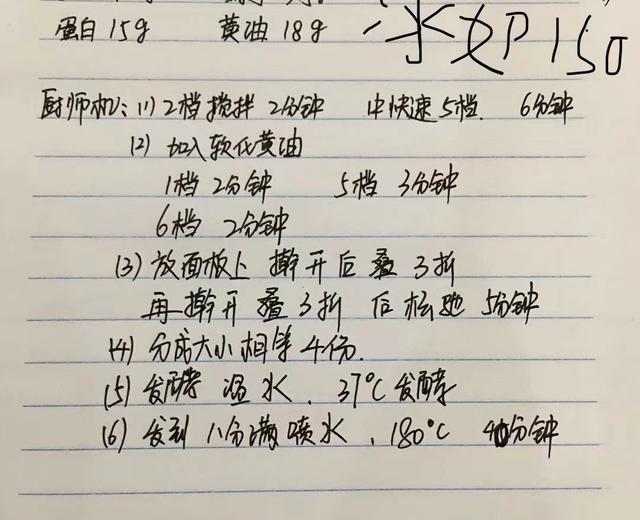 蛋白 15g 黄油 18g
厨师机: (1) 2档搅拌 2分钟 中快速5档. 6分钟
(2) 加入软化黄油
1档 2分钟 5档 3分钟
6档 2分钟
(3) 放面板上 擀开后叠3折
再擀开叠3折 后松弛 5分钟
(4) 分成大小相等4份.
(5) 发酵 温水. 37°C 发酵
(6) 发到 八分满喷水. 180°C 40分钟